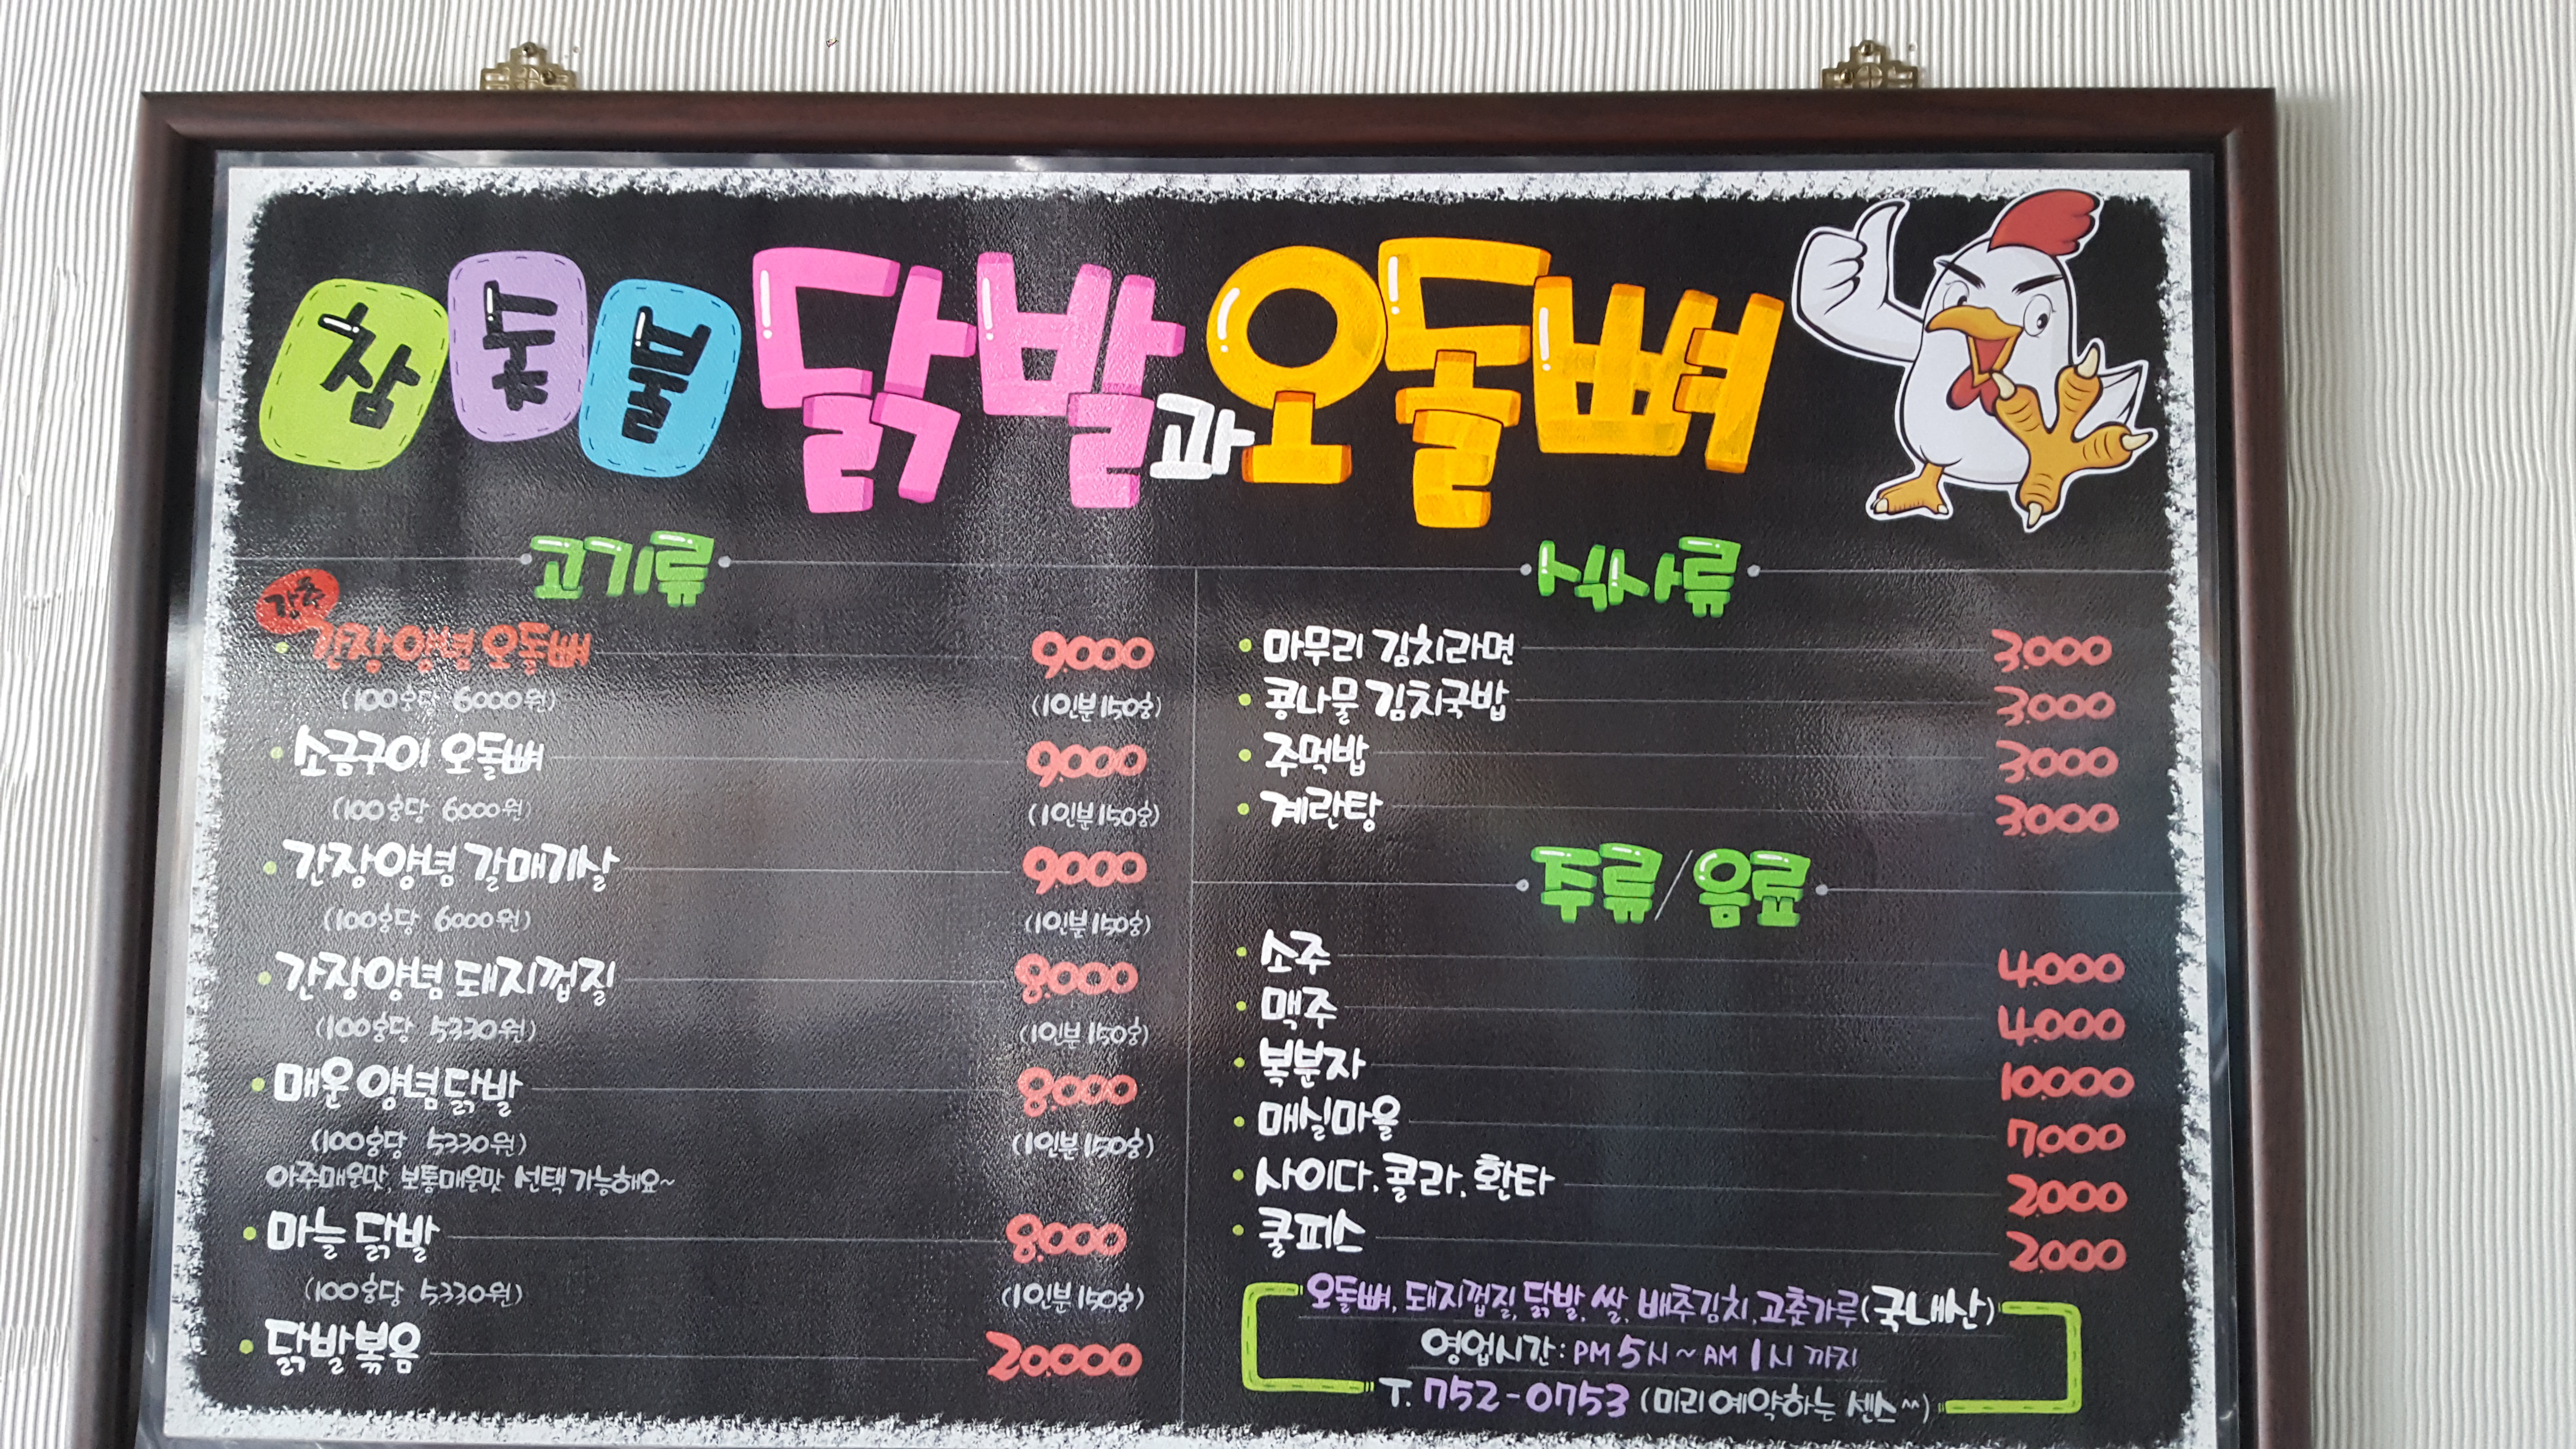 참숯불 닭발과 오돌뼈
고기류
강추
간장양념 오돌뼈 9.000
(100g당 6000원) (1인분 150g)
소금구이 오돌뼈 9.000
(100g당 6000원) (1인분 150g)
간장양념 갈매기살 9.000
(100g당 6000원) (1인분 150g)
간장양념 돼지껍질 8.000
(100g당 5330원) (1인분 150g)
매운양념닭발 8.000
(100g당 5330원) (1인분 150g)
아주매운맛, 보통매운맛 선택 가능해요~
마늘 닭발 8.000
(100g당 5330원) (1인분 150g)
닭발볶음 20.000
식사류
마무리 김치라면 3.000
콩나물 김치국밥 3.000
주먹밥 3.000
계란탕 3.000
주류/음료
소주 4.000
맥주 4.000
복분자 10.000
매실마을 7.000
사이다, 콜라, 환타 2.000
쿨피스 2.000
오돌뼈, 돼지껍질, 닭발, 쌀, 배추김치, 고춧가루(국내산)
영업시간 : PM 5시 ~ AM 1시 까지
T. 752-0753 (미리예약하는 센스^^)